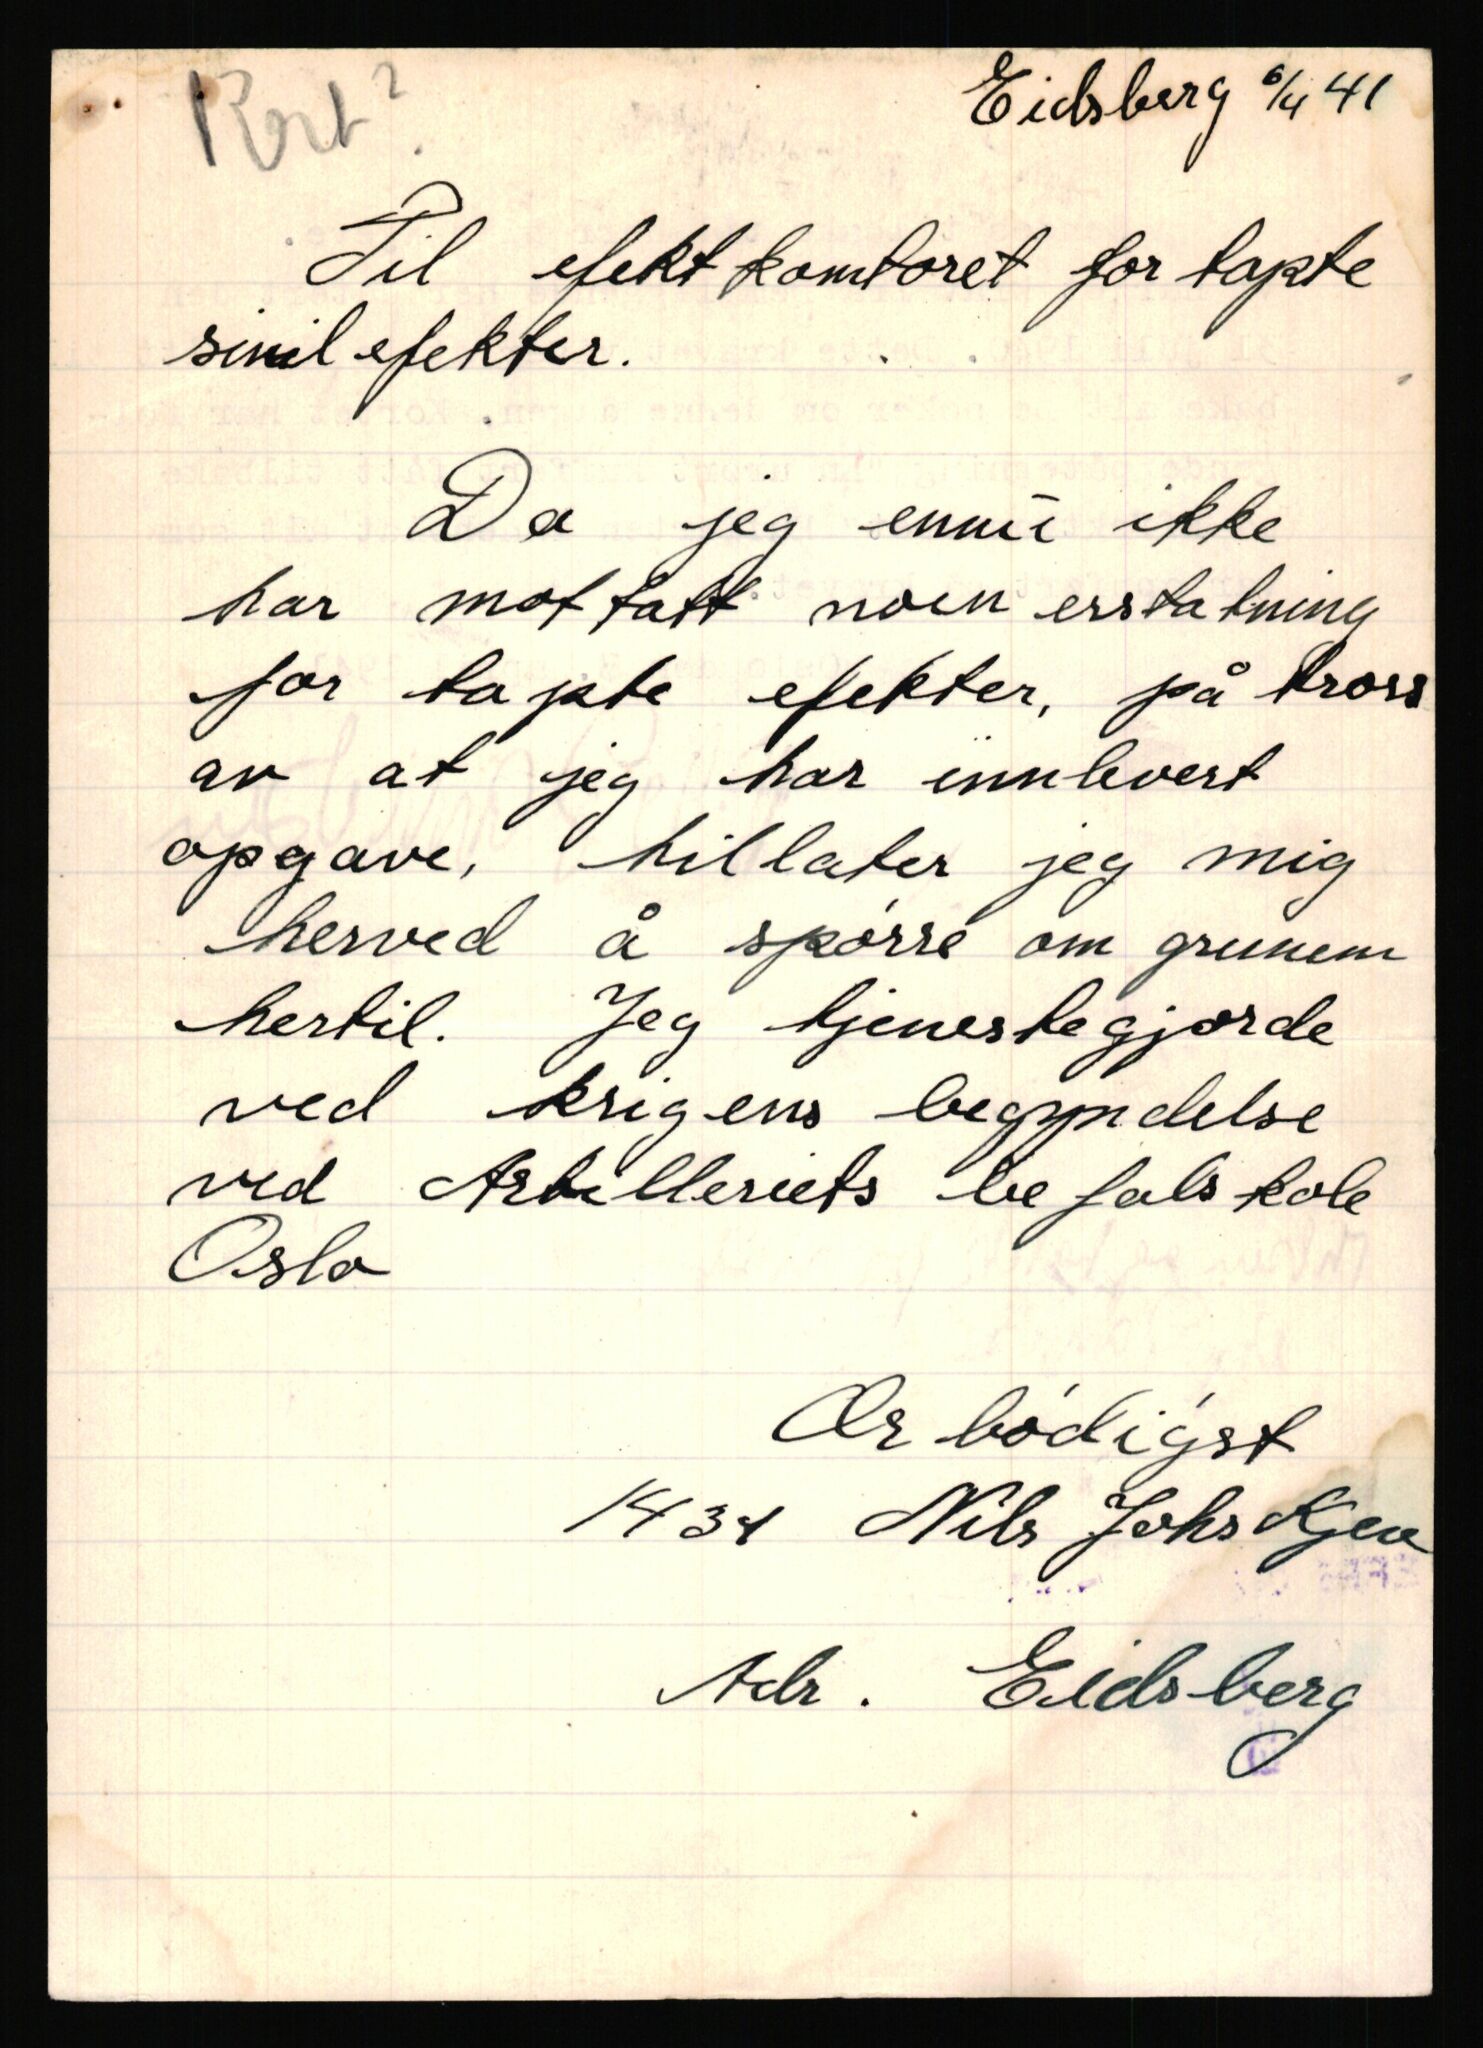 Kort?
Eidsberg 6/4 41
Til efektkontoret for tapte
sivil efekter.
Da jeg ennu ikke
har mottatt noen erstatning
for tapte efekter, på tross
av at jeg har innlevert
opgave, tillater jeg mig
herved å spørre om grunnen
hertil. Jeg tjenestegjorde
ved krigens begyndelse
ved Artilleriets befalskole
Oslo
Ærbødigst
1434 Nils Johs
Adr. Eidsberg